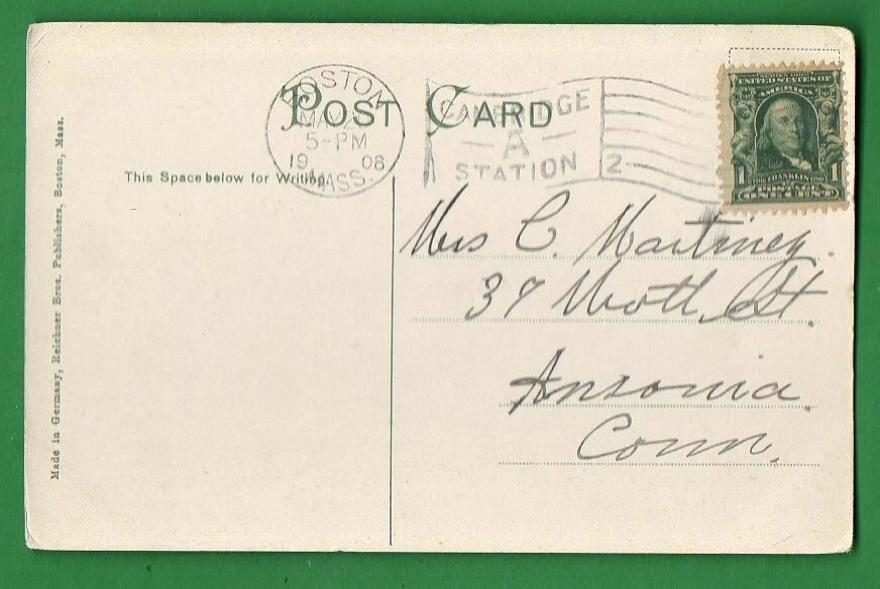 POST CARD
BOSTON
5-PM
19 08
MASS.
CAMBRIDGE
A
STATION
2
SERIES 1902
UNITED STATES OF
AMERICA
1 1
FRANKLIN
This Space below for Writing
Made in Germany, Reichner Bros. Publishers, Boston, Mass.
Mrs C. Martiney.
37 St.
Ansonia.
Conn.